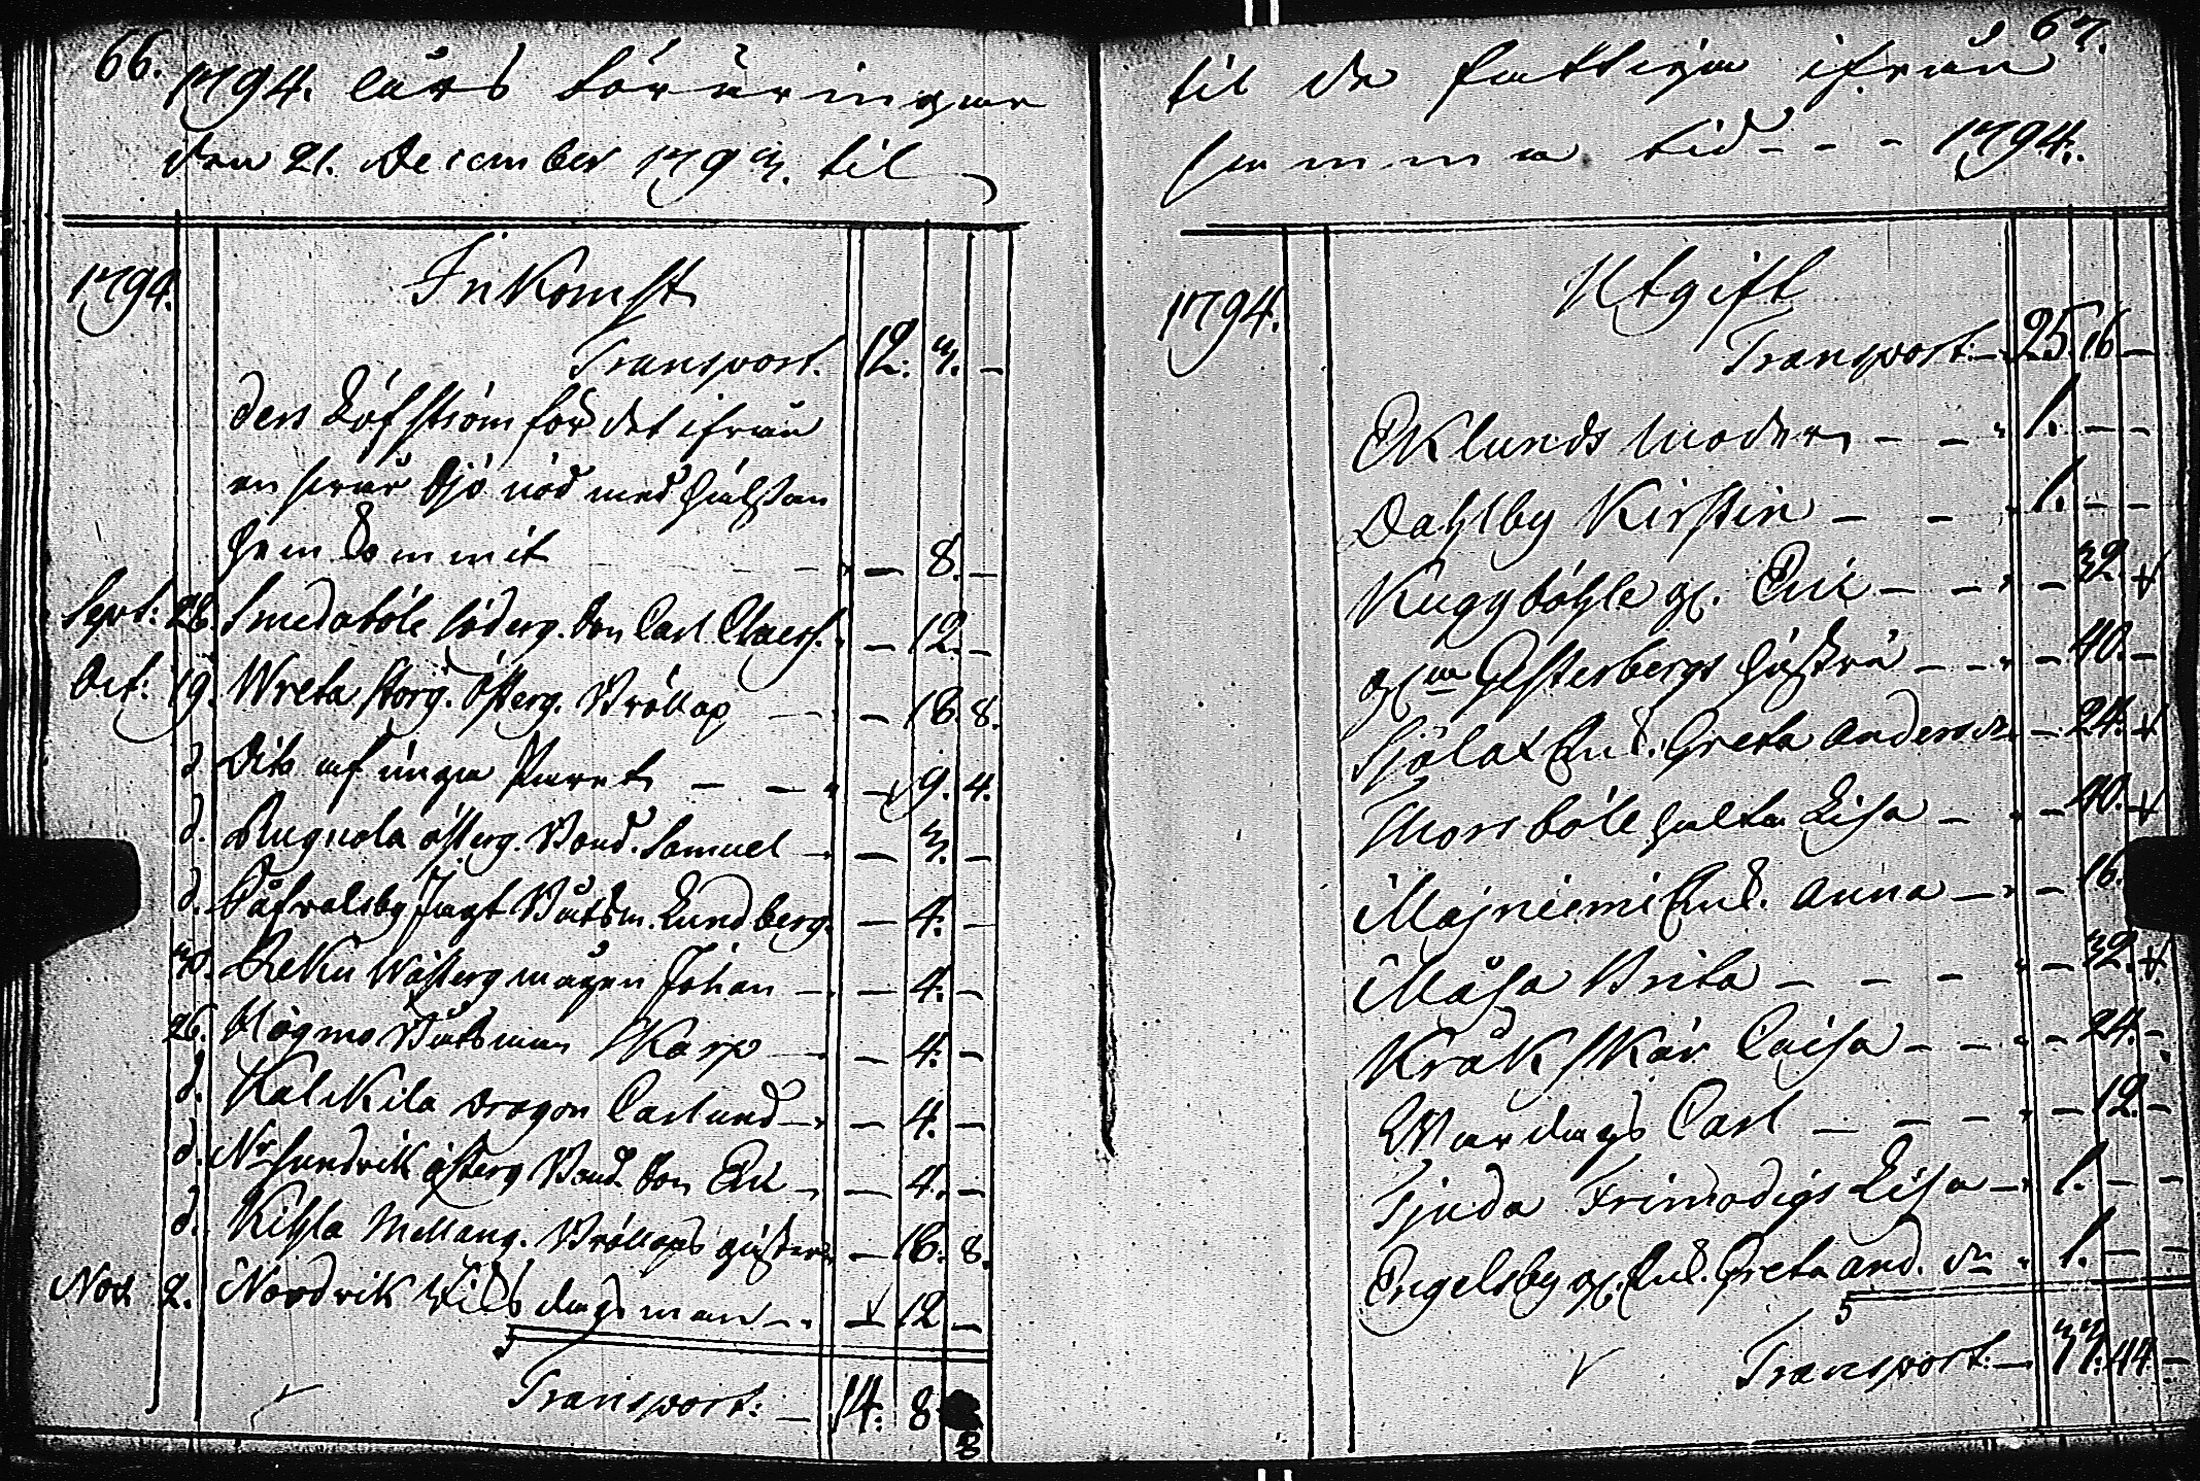 66.
1794. års föräringar
den 21. December 1793. til
1794. Inkomst
Transport. 12. 3. —
ders Löfström för det ifrån
en svår Sjö nöd med hälsan
hem kommit — 8. —
Sept: 28. Smedsböle söderg. Son Carl Claess. — 12. —
Oct: 19. Wreta storg. österg. Bröllop — 16. 8.
d. Dito af unga Paret — — 9. 4.
d. österg. Bond. Samuel — 3. —
d. Båfvalsby Jagt Båtsm. Lundberg. — 4. —
Wästerg mågen Johan — 4. —
26. Högmo Båtsman Skarp — 4. —
d. Kalkila Dragon Carlund — 4. —
d. österg Bond Son Eric — 4. —
d. Kihla Mellang. Bröllops gäster — 16. 8.
Nov. 2. Nordvik dagsman — 12 —
Transport: — 14. 8 8
67.
til de fattiga ifrån
samma tid - - - 1794.
1794. Utgift
Transport: — 25. 16 —
Eklunds Moder — — 1. — —
Dahlby Kirstin — — 1. — —
Kuggböhle gl. Eric — — — 32.
Gesterbergs hustru — — — 40. —
Sjölax Enk. Greta Anders dr — 24.
Morsböle halta Lisa — — 40.
Majniemi Enk. Anna — — 16.
Måsa Brita — — — — 32.
Kråkskär Caisa — — — 24. —
Wardags Carl — — — — 12. —
Tjuda Frimodigs Lisa — 1. — —
Engelsby gl. Enk. Greta And. dr 1. — —
Transport: — 33. 44. —